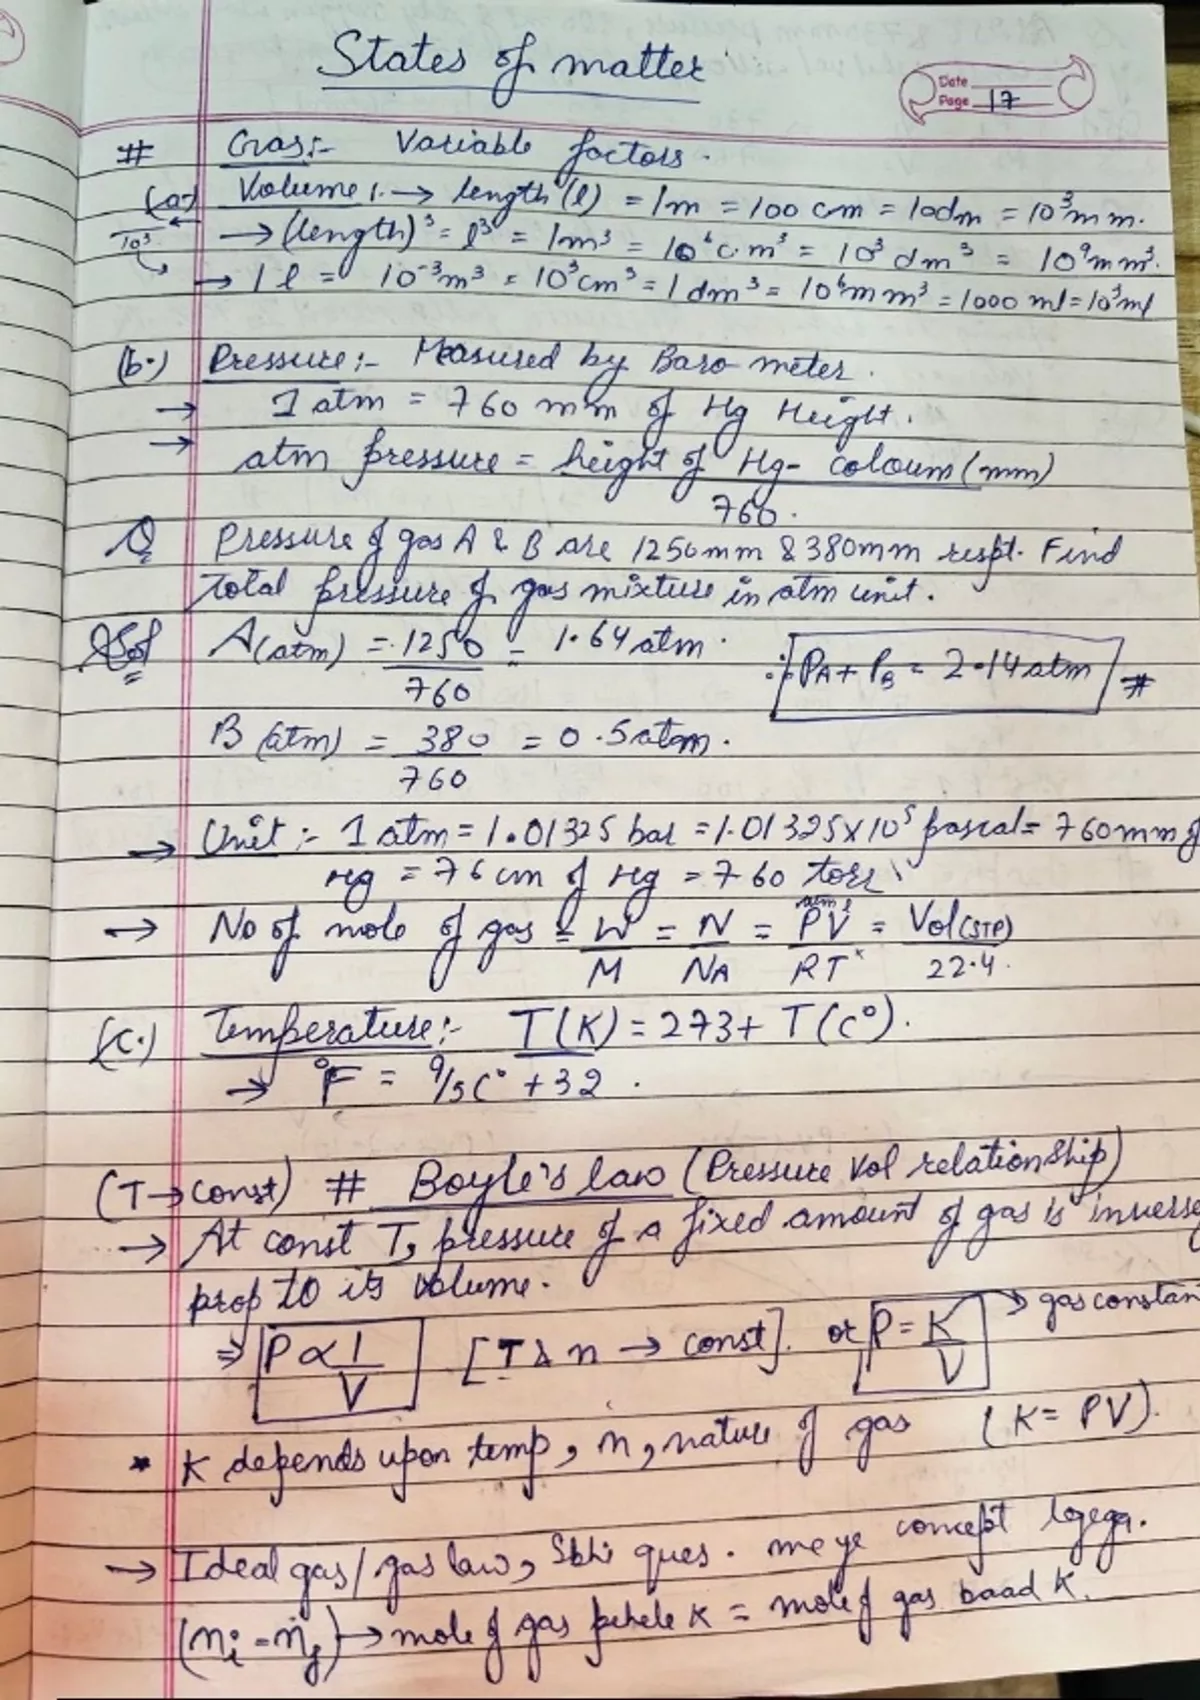 States of matter
Date
Page 17
# Gas:- Variable factors.
(a.) Volume:. → length (l) = 1m = 100 cm = 10dm = 10³mm.
→ (length)³ = l³ = 1m³ = 10⁶cm³ = 10³ dm³ = 10⁹mm³.
10³
→ 1l = 10⁻³m³ = 10³cm³ = 1dm³ = 10⁶mm³ = 1000 ml = 10³ml
(b.) Pressure:- Measured by Baro meter.
→ 1 atm = 760 mm of Hg Height.
→ atm pressure = height of Hg- coloum (mm)
760.
Q Pressure of gas A & B are 1250mm & 380mm respt. Find
total pressure of gas mixture in atm unit.
Sol A(atm) = 1250 = 1.64 atm.
760
∴ PA + PB = 2.14 atm #
B (atm) = 380 = 0.5 atom.
760
→ Unit:- 1 atm = 1.01325 bar = 1.01325×10⁵ pascal = 760mm of
Hg = 76 cm of Hg = 760 torr
→ No of mole of gas = W = N = PV = Vol(STP)
M NA RT 22.4.
(c.) Temperature:- T(K) = 273 + T(C°).
→ °F = 9/5C° + 32.
(T→const) # Boyle's law (Pressure Vol relationship)
→ At const T, pressure of a fixed amount of gas is inverse
prop to its volume.
⇒ P ∝ 1 [T & n → const]. or P = K → gas constan
V V
* K depends upon temp, n, nature of gas (K = PV).
→ Ideal gas/gas law, Sbhi ques. me ye concept lgega.
(ni = nf) → mole of gas pehele K = mole of gas baad K.